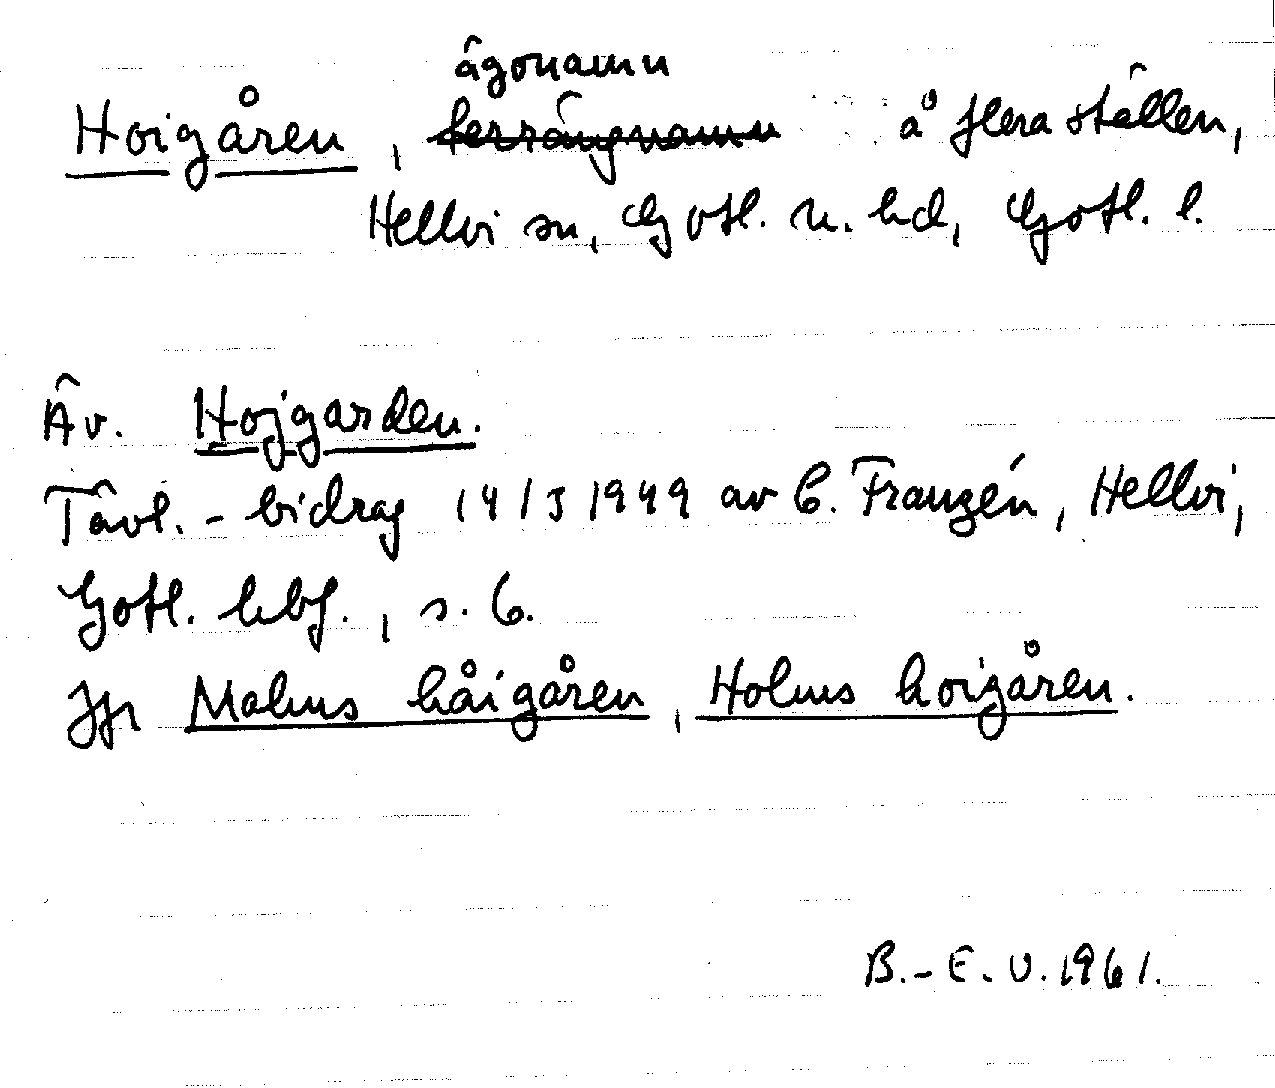 ägonamn
Hoigåren, terrängnamn å flera ställen,
Hellvi sn, Gotl. n. hd, Gotl. l.
Äv. Hojgarden.
Tävl.-bidrag 14/3 1949 av C. Franzén, Hellvi,
Gotl. hbf., s. 6.
Jfr Malms håigåren, Holms hoigåren.
B.-E. U. 1961.